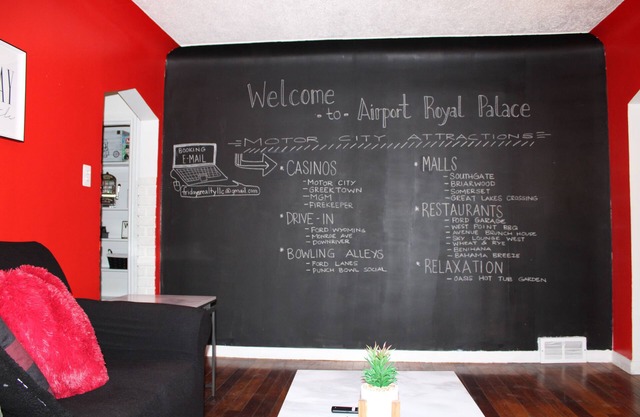 AY
Welcome
- to - Airport Royal Palace
= MOTOR CITY ATTRACTIONS =
BOOKING
E-MAIL
fridayrealtyllc@gmail.com
* CASINOS
- MOTOR CITY
- GREEKTOWN
- MGM
- FIREKEEPER
* DRIVE-IN
- FORD WYOMING
- MONROE AVE
- DOWNRIVER
* BOWLING ALLEYS
- FORD LANES
- PUNCH BOWL SOCIAL
* MALLS
- SOUTHGATE
- BRIARWOOD
- SOMERSET
- GREAT LAKES CROSSING
* RESTAURANTS
- FORD GARAGE
- WEST POINT BBQ
- AVENUE BRUNCH HOUSE
- SKY LOUNGE WEST
- WHEAT & RYE
- BENIHANA
- BAHAMA BREEZE
* RELAXATION
- OASIS HOT TUB GARDEN